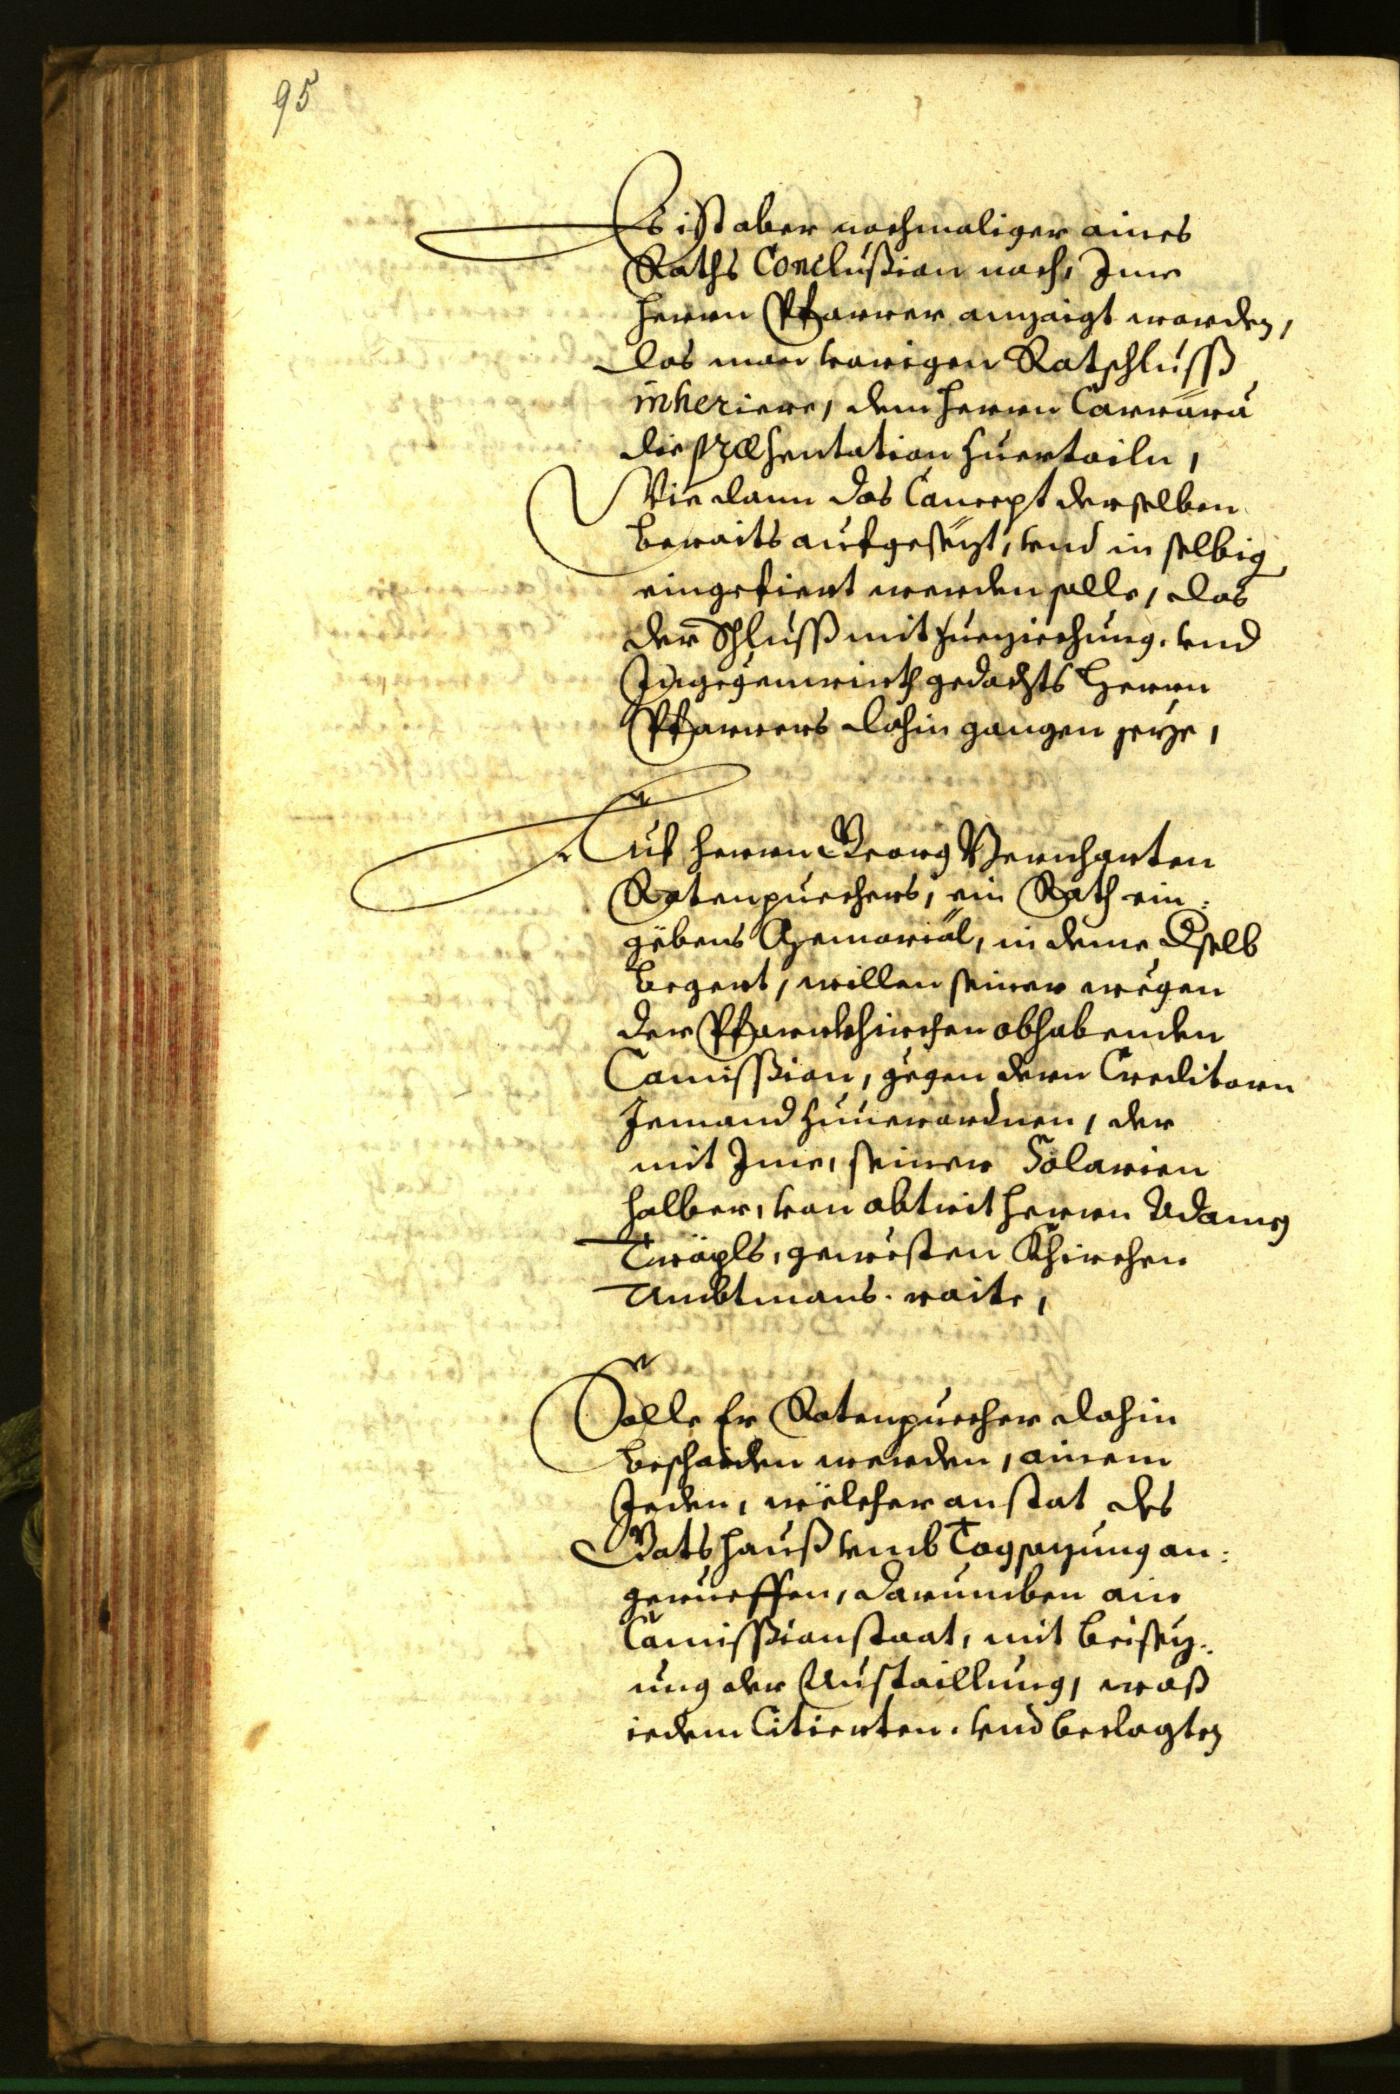 95
Es ist aber nochmaliger aines
Raths Conclußion nach, Ime
herrn Pfarrer anzaigt worden,
das man vorigen Ratschlusß
inheriere, dem herrn Carrara
die præsentation zuertailn,
Wie dann das Concept derselben
beraits aufgesezt, vnd in selbig
eingefiert werden solle, das
der Schlusß mit zueziechung. vnd
In gegenwirth gedachts Herrn
Pfarrers dahin gangen seye,
Auf herrn Georg Bernharten
Rotenpuechers, ein Rath ein:
gëbens Memorial, in deme Dselb
begert, willen seiner wegen
der Pfarrkhirchen obhabenden
Comisßion, gegen dern Creditorn
Jemand zuuerordnen, der
mit Ime, seiner Solarien
halber, von abtrit herrn Adamen
Tröpls, gewesten Khirchen
Ambtmans. raite,
Solle Er Rotenpuecher dahin
beschaiden werden, ainem
Jeden, wëlcher anstat des
Gotshauß vmb Tagsazung an:
gerueffen, darumben ain
Comisßion staat, mit beisez:
ung der Austaillung, waß
iedem Citierten. vnd beclagten